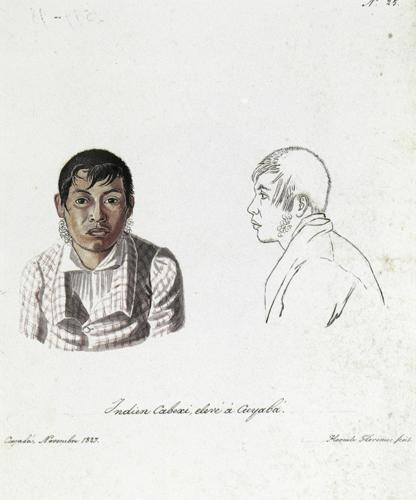 N.º 25.
Indien Cabexi, elevé à Cuyabá.
Cuyabá, Novembre 1827. Hercule Florence fecit.